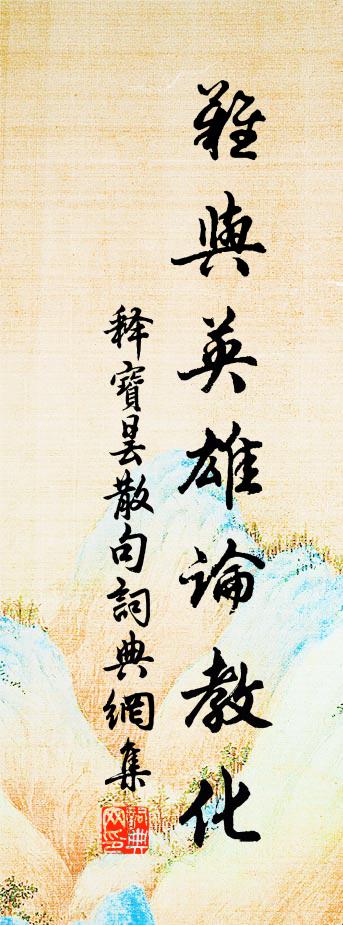 難與英雄論教化
释寶曇散句詞典網集
詞典網印